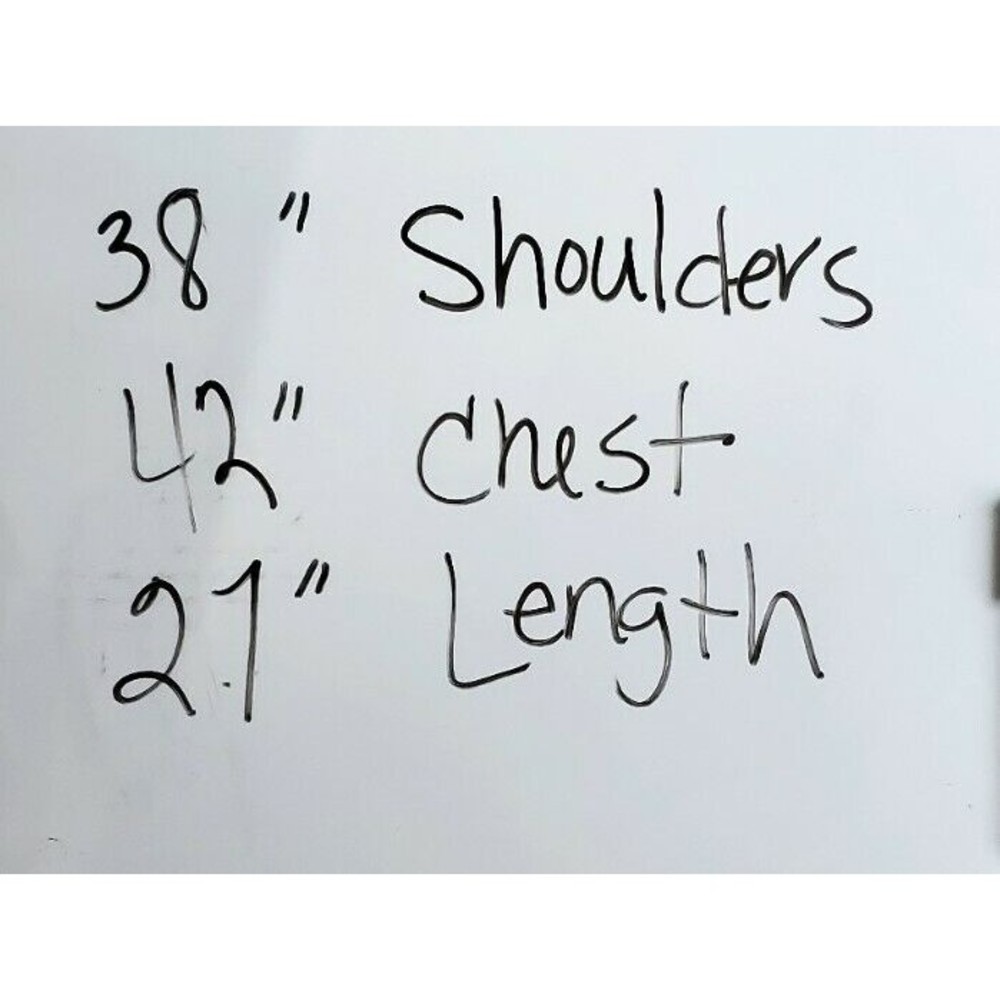 38" Shoulders
42" Chest
27" Length